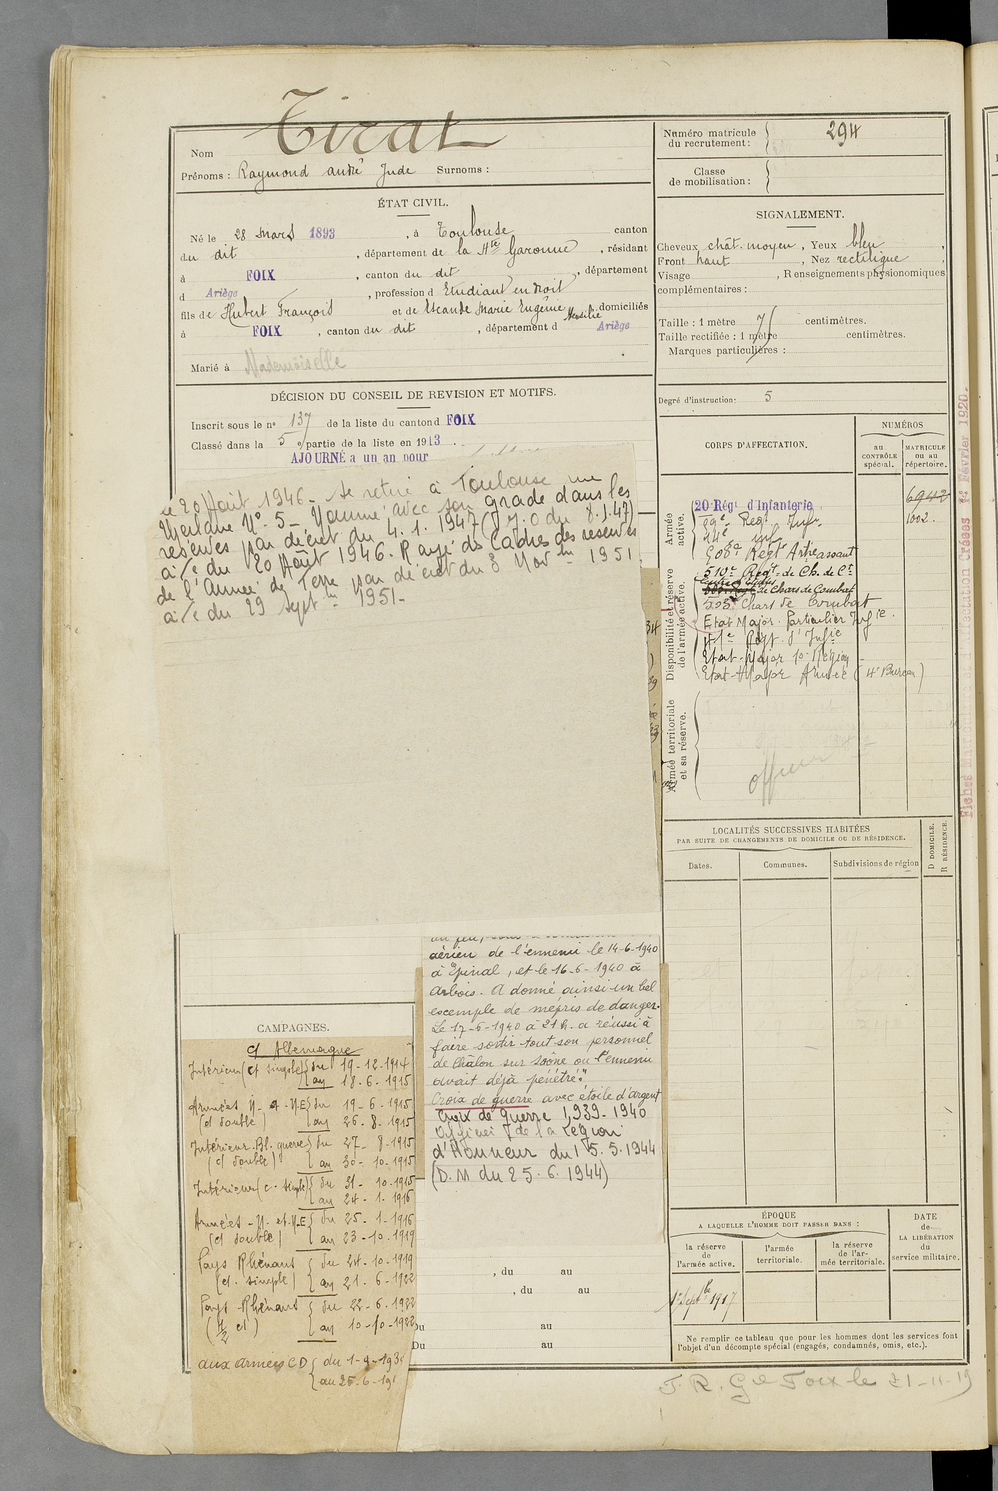 Nom Tirat
Prénoms : Raymond André Jude Surnoms :
ÉTAT CIVIL.
Né le 28 Mars 1893, à Toulouse canton
du dit, département de la Hte Garonne, résidant
à FOIX, canton du dit, département
d Ariège, profession d Etudiant en droit
fils de Hubert François et de Escande Marie Eugénie, domiciliés
à FOIX, canton du dit, département d Ariège
Marié à Mademoiselle
DÉCISION DU CONSEIL DE REVISION ET MOTIFS.
Inscrit sous le n° 137 de la liste du canton d FOIX
Classé dans la 5e partie de la liste en 1913.
AJOURNÉ a un an pour
le 20 Août 1946 - Se retire à Toulouse rue
Mendune N° 5 - Nommé avec son grade dans les
réserves par décret du 4.1.1947 (J.O du 8.1.47)
à/c du 20 Août 1946. Rayé des Cadres des réserves
de l'Armée de Terre par décret du 8 Nov 1951
à/c du 29 Sept 1951 -
aérien de l'ennemi le 14-6-1940
à Epinal, et le 16-6-1940 à
Arbois. A donné ainsi un bel
exemple de mépris de danger.
Le 17-6-1940 à 21 h. a réussi à
faire sortir tout son personnel
de Châlon sur Saône où l'ennemi
avait déjà pénétré."
Croix de guerre avec étoile d'Argent
Croix de Guerre 1939-1940
Officier de la Légion
d'Honneur du 15.5.1944
(D.M du 25.6.1944)
, du au
, du au
Du au
Du au
CAMPAGNES.
c/ Allemagne
Intérieur (c/ simple) { du 19-12-1914
au 18-6-1915
Armées N. et N.E { du 19-6-1915
(c/ double) au 26-8-1915
Intérieur Bl. guerre { du 27-8-1915
(c/ double) au 30-10-1915
Intérieur (c. simple) { du 31-10-1915
au 24-1-1916
Armées - N. et N.E { du 25-1-1916
(c/ double) au 23-10-1919
Pays Rhénans { du 24-10-1919
(c/. simple) au 21-6-1922
Pays Rhénans { du 22-6-1922
(1/2 c/) au 10-10-1922
aux Armées CD { du 1-9-193
au 25-6-19
Numéro matricule du recrutement : 294
Classe de mobilisation :
SIGNALEMENT.
Cheveux chât. moyen, Yeux bleu,
Front haut, Nez rectiligne,
Visage , Renseignements physionomiques
complémentaires :
Taille : 1 mètre 71 centimètres.
Taille rectifiée : 1 mètre centimètres.
Marques particulières :
Degré d'instruction : 5
CORPS D'AFFECTATION.
NUMÉROS
au CONTRÔLE spécial.
MATRICULE ou au répertoire.
Armée active.
20 Régt d'Infanterie 6942
Regt Inf. 1002.
Inf
508e Regt Artie assaut
Disponibilité et réserve de l'armée active.
510e Regt de Ch. de Ct
de Chars de Combat
505e Chars de Combat
Etat Major Particulier Infie.
Regt d'Infie
Etat-Major Région
Etat-Major Armée (4e Bureau)
Armée territoriale et sa réserve.
officier
Fiches Matricules et d'Affectation créées Février 1920.
LOCALITÉS SUCCESSIVES HABITÉES
PAR SUITE DE CHANGEMENTS DE DOMICILE OU DE RÉSIDENCE.
Dates.
Communes.
Subdivisions de région
D DOMICILE.
R RÉSIDENCE.
ÉPOQUE
A LAQUELLE L'HOMME DOIT PASSER DANS :
la réserve de l'armée active.
l'armée territoriale.
la réserve de l'armée territoriale.
DATE de LA LIBÉRATION du service militaire.
1er Septbre 1917
Ne remplir ce tableau que pour les hommes dont les services font
l'objet d'un décompte spécial (engagés, condamnés, omis, etc.).
Foix le 21-11-19